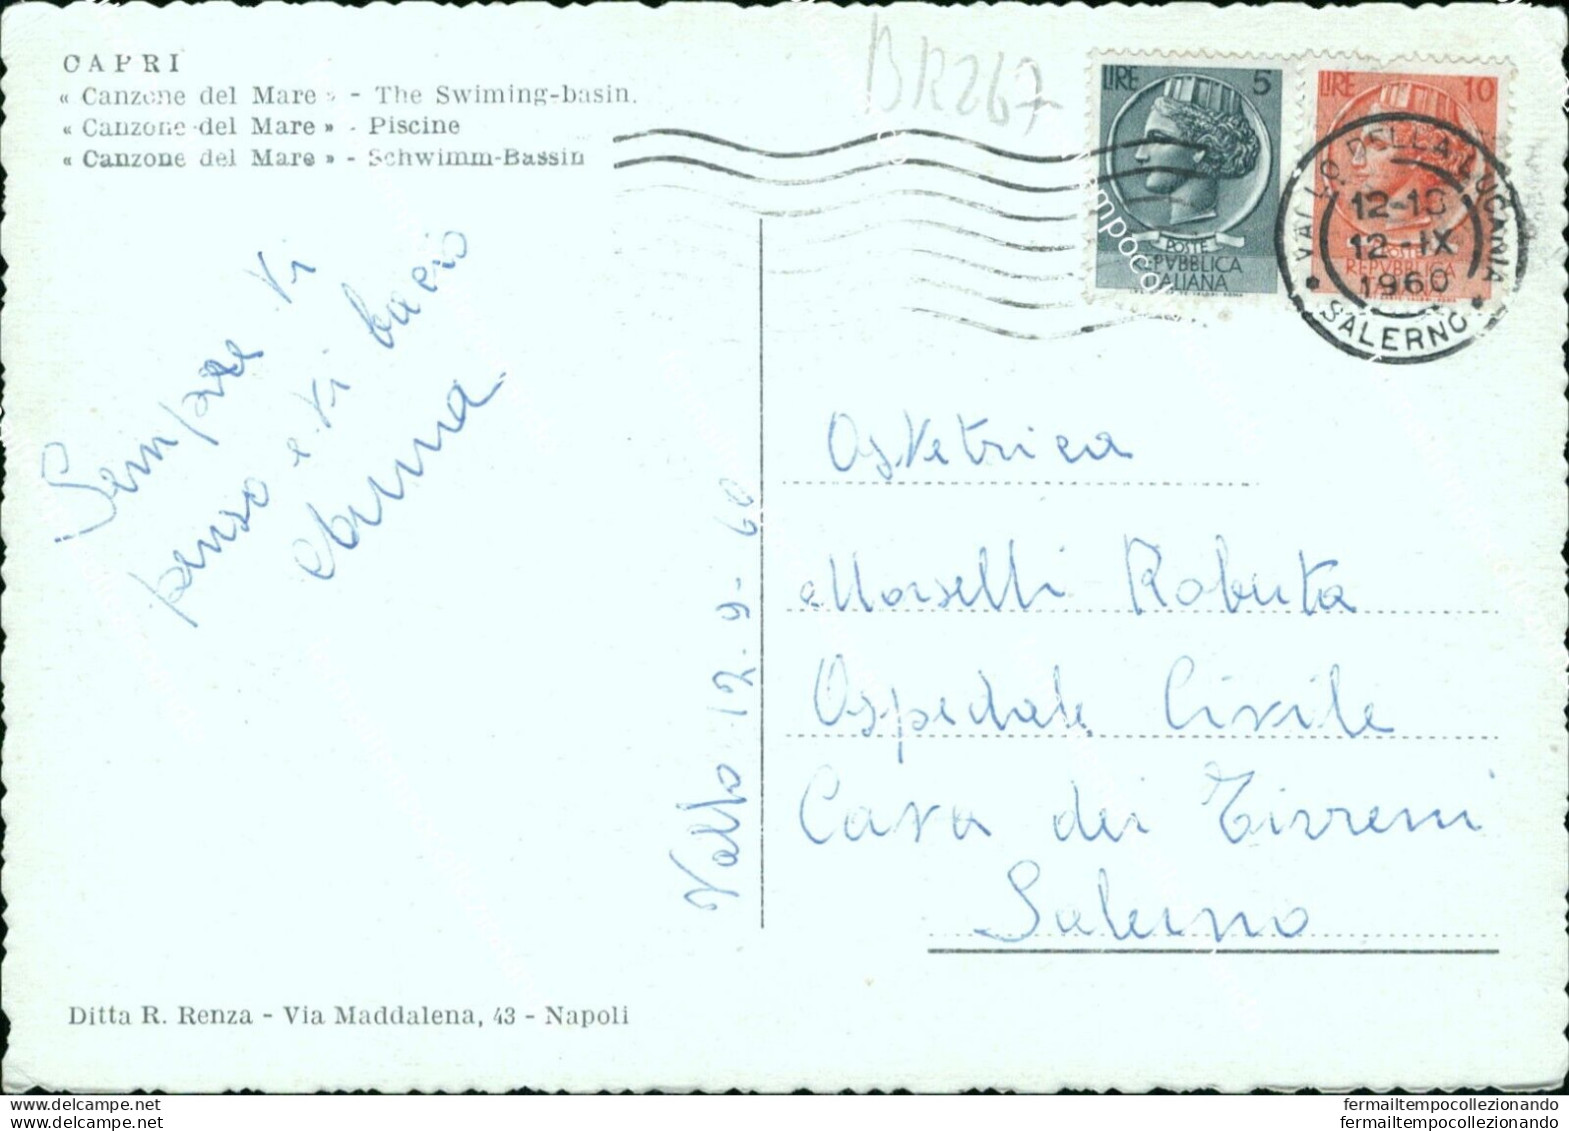 CAPRI
« Canzone del Mare » - The Swiming-basin.
« Canzone del Mare » - Piscine
« Canzone del Mare » - Schwimm-Bassin
BR267
LIRE 5
POSTE
REPVBBLICA
ITALIANA
LIRE 10
POSTE
REPVBBLICA
VALLO DELLA LUCANIA
12-IX
1960
SALERNO
Sempre vi
penso e vi bacio
Anna
Vallo 12-9-60
Ostetrica
Morselli Roberta
Ospedale Civile
Cava dei Tirreni
Salerno
Ditta R. Renza - Via Maddalena, 43 - Napoli
www.delcampe.net
www.delcampe.net
fermailtempocollezionando
fermailtempocollezionando